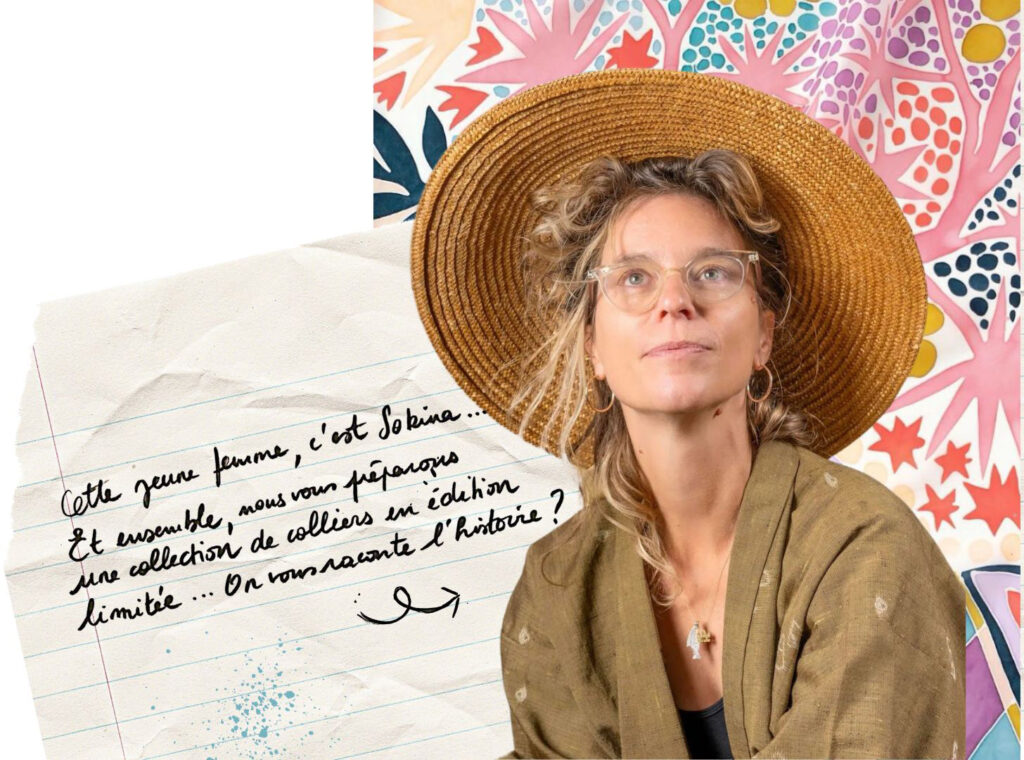 Cette jeune femme, c'est Sokina...
Et ensemble, nous vous préparons
une collection de colliers en édition
limitée ... On vous raconte l'histoire ?